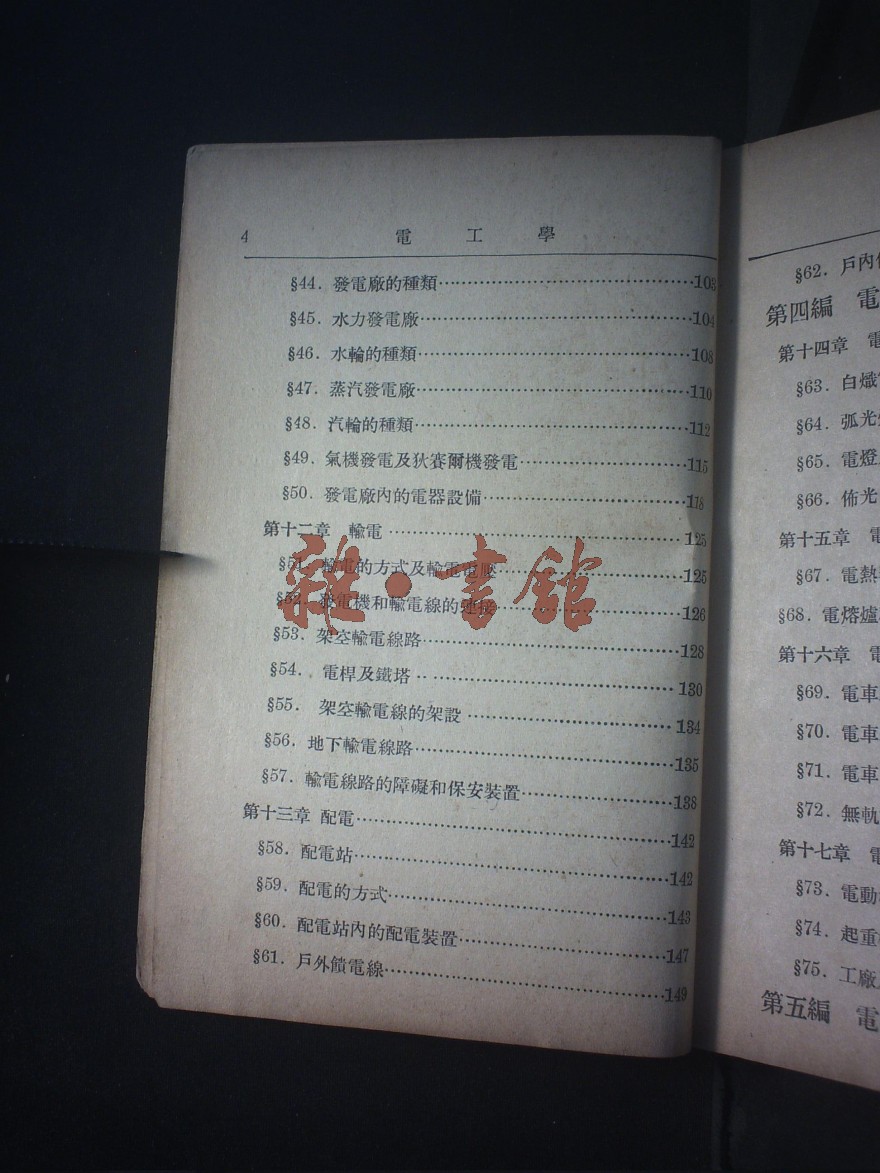 4 電工學
§44. 發電廠的種類……103
§45. 水力發電廠……104
§46. 水輪的種類……108
§47. 蒸汽發電廠……110
§48. 汽輪的種類……112
§49. 氣機發電及狄賽爾機發電……115
§50. 發電廠內的電器設備……118
第十二章 輸電……125
§51. 輸電的方式及輸電電壓……125
§52. 發電機和輸電線的連接……126
§53. 架空輸電線路……128
§54. 電桿及鐵塔……130
§55. 架空輸電線的架設……134
§56. 地下輸電線路……135
§57. 輸電線路的障礙和保安裝置……138
第十三章 配電……142
§58. 配電站……142
§59. 配電的方式……143
§60. 配電站內的配電裝置……147
§61. 戶外饋電線……149
雜·書館
§62. 戶內
第四編 電
第十四章 電
§63. 白熾
§64. 弧光
§65. 電燈
§66. 佈光
第十五章 電
§67. 電熱
§68. 電熔爐
第十六章 電
§69. 電車
§70. 電車
§71. 電車
§72. 無軌
第十七章 電
§73. 電動
§74. 起重
§75. 工廠
第五編 電